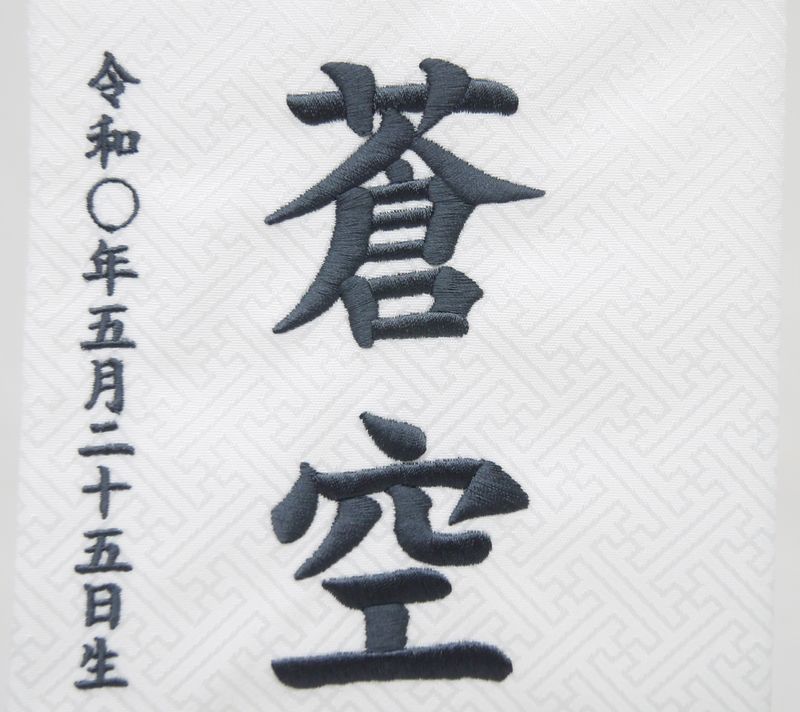 蒼空
令和〇年五月二十五日生